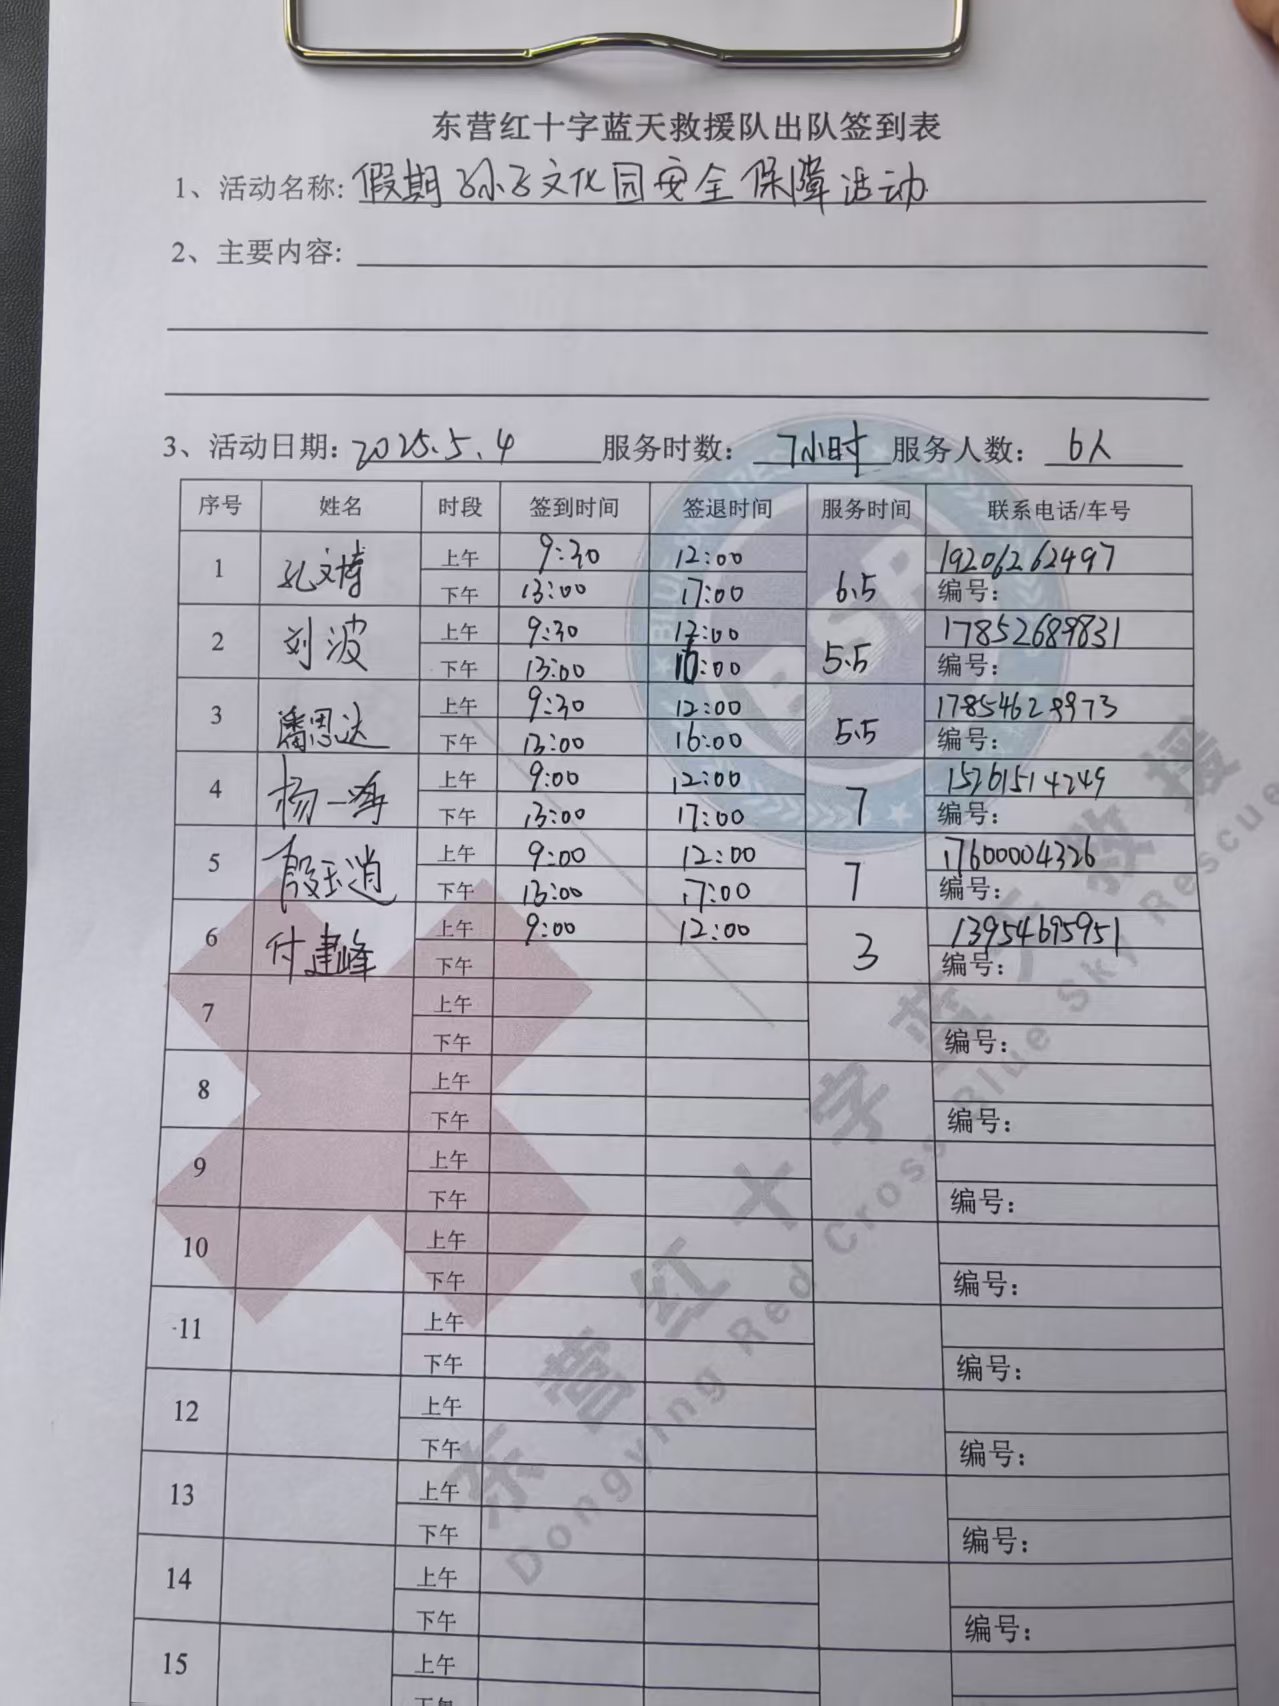 东营红十字蓝天救援队出队签到表
1、活动名称: 假期孙子文化园安全保障活动
2、主要内容:
3、活动日期: 2025.5.4 服务时数: 7小时 服务人数: 6人
序号 姓名 时段 签到时间 签退时间 服务时间 联系电话/车号
1 孔文博 上午 9:30 12:00 6.5 19206262497
下午 13:00 17:00 编号:
2 刘波 上午 9:30 12:00 5.5 17852689831
下午 13:00 16:00 编号:
3 潘思达 上午 9:30 12:00 5.5
下午 13:00 16:00 编号:
4 杨一海 上午 9:00 12:00 7 15261514249
下午 13:00 17:00 编号:
5 殷玉逍 上午 9:00 12:00 7 17600004326
下午 13:00 17:00 编号:
6 付建峰 上午 9:00 12:00 3 13954695951
下午 编号:
7 上午
下午 编号:
8 上午
下午 编号:
9 上午
下午 编号:
10 上午
下午 编号:
11 上午
下午 编号:
12 上午
下午 编号:
13 上午
下午 编号:
14 上午
下午 编号:
15 上午
下午
东营红十字蓝天救援
Dongying Red Cross Blue Sky Rescue
BSR